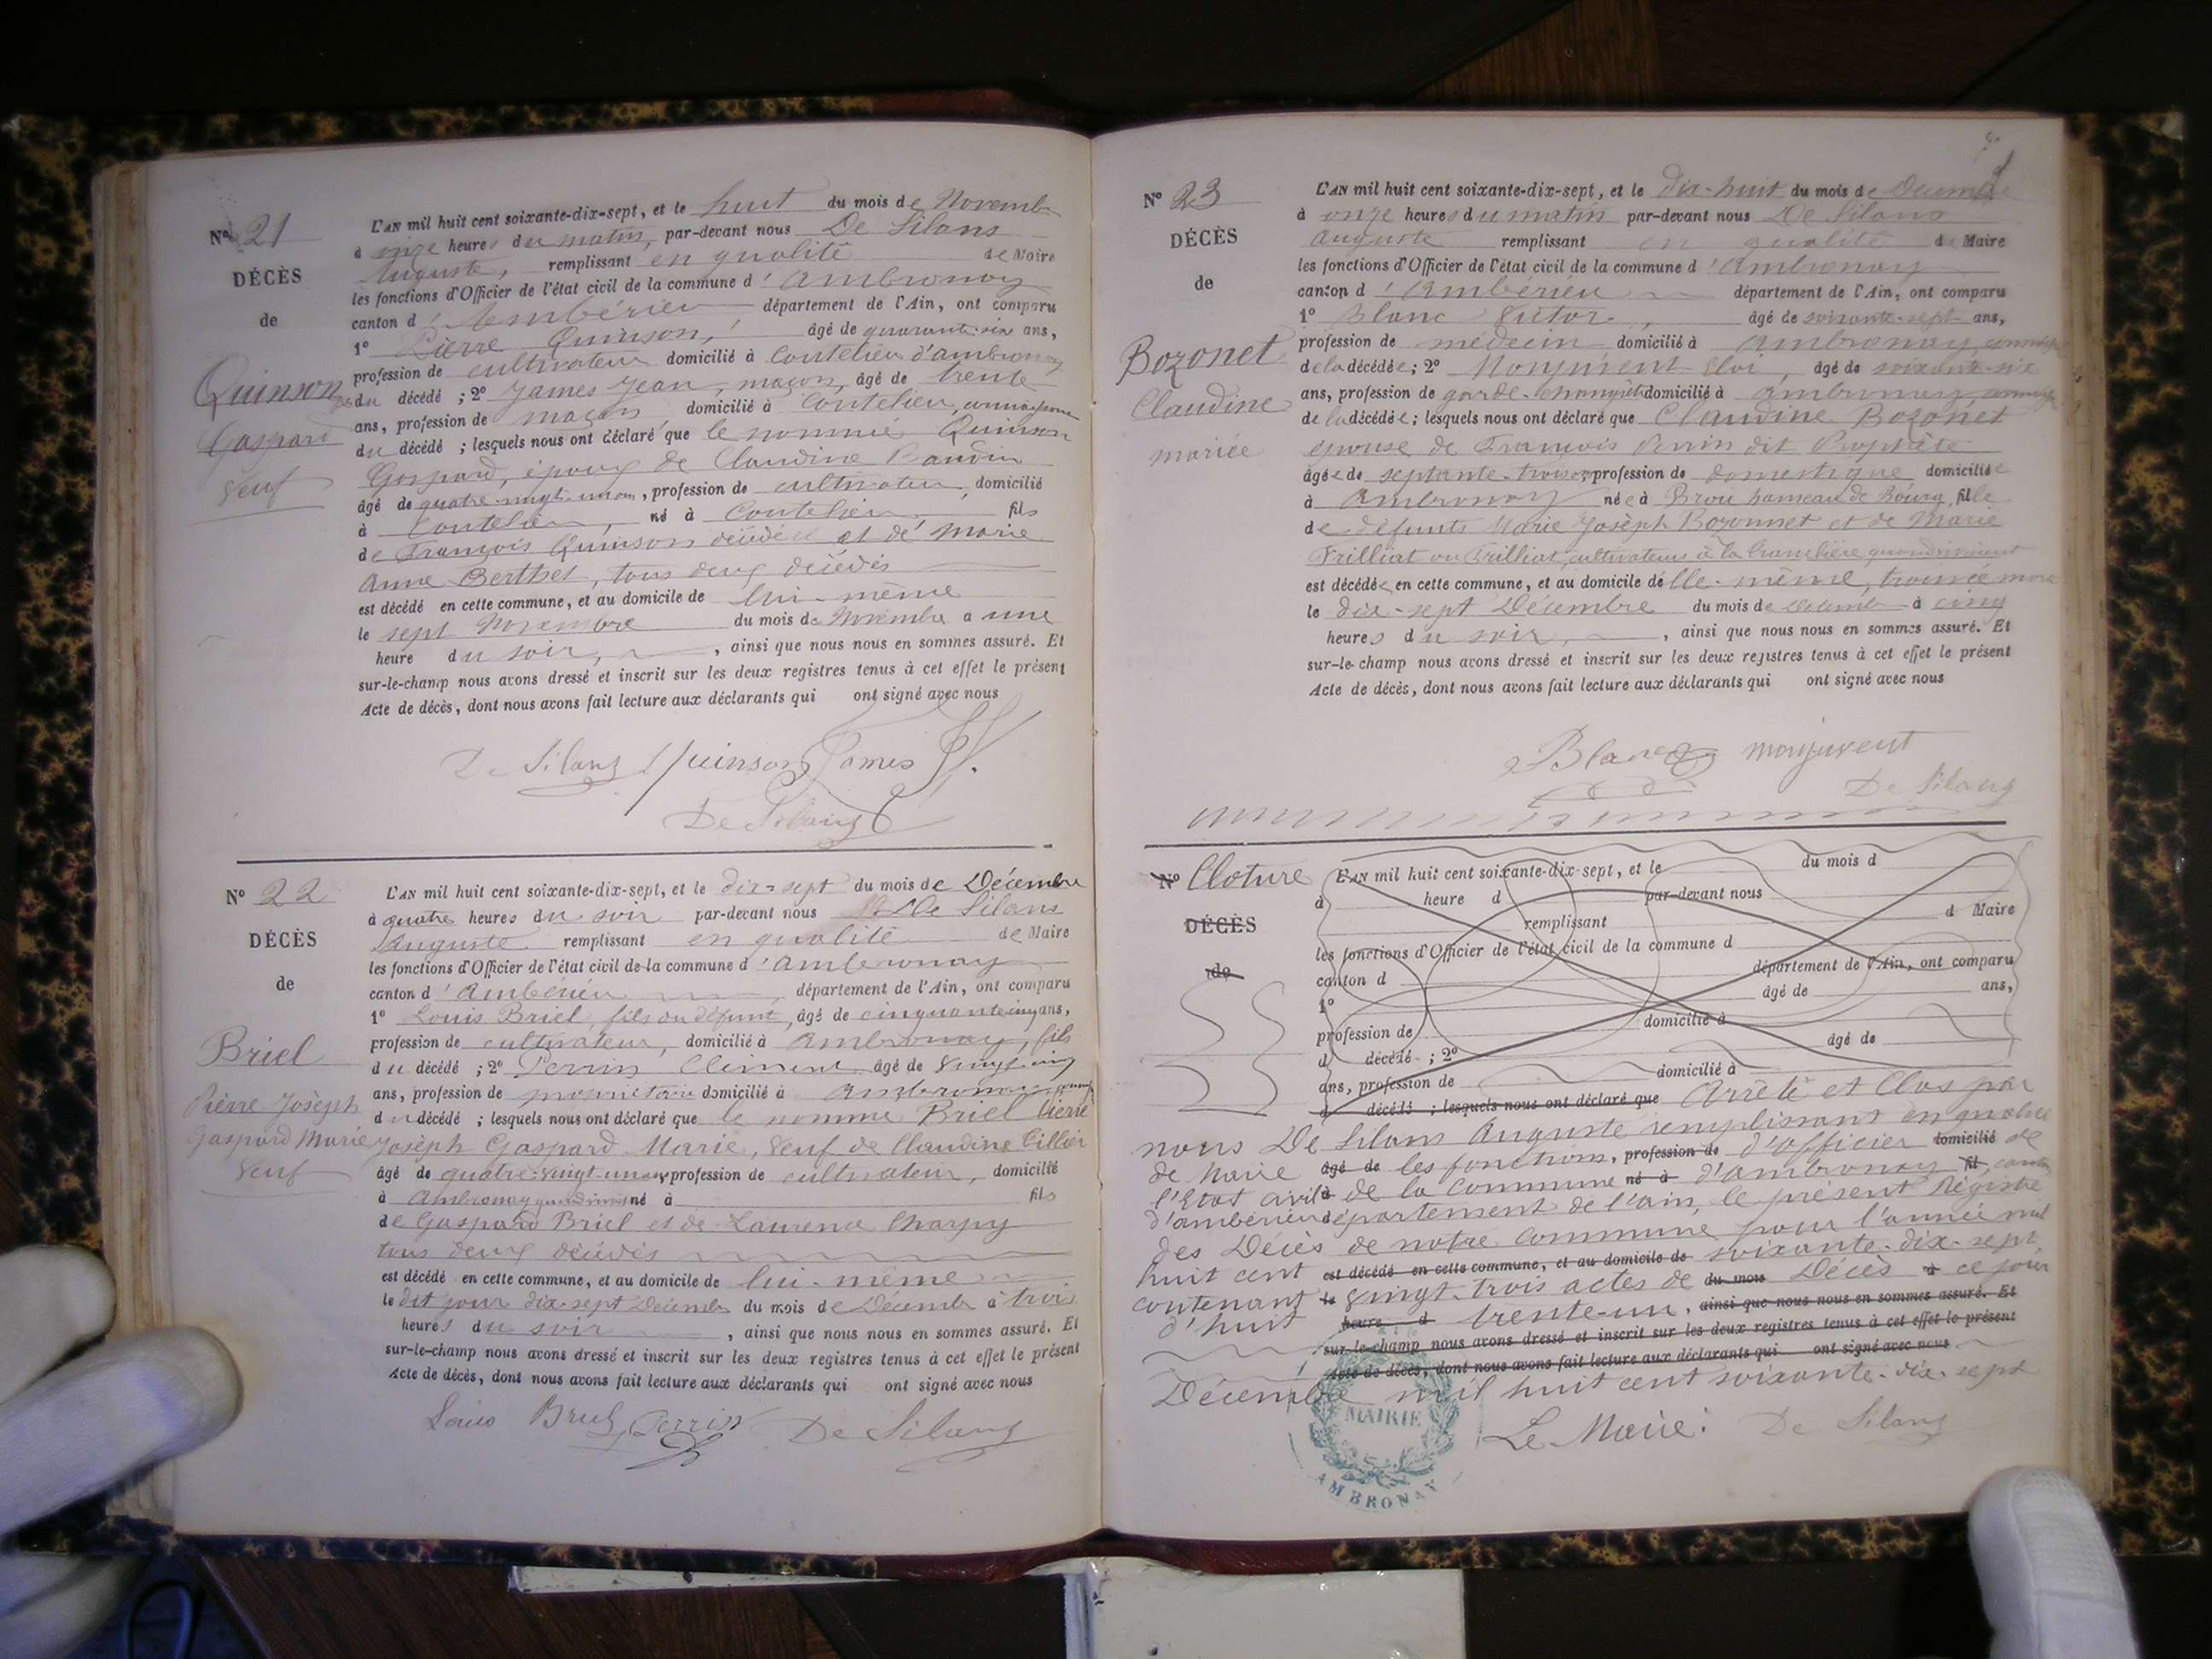 Nº 21
DÉCÈS
de
Quinson
Gaspard
Veuf
L'AN mil huit cent soixante-dix-sept, et le huit du mois de Novembre
à onze heures du matin, par-devant nous De Silans
Auguste, remplissant en qualité de Maire
les fonctions d'Officier de l'état civil de la commune d'Ambronay
canton d'Ambérieu département de l'Ain, ont comparu
1º Pierre Quinson, âgé de quarante-six ans,
profession de cultivateur domicilié à Coutelieu d'ambronay
du décédé ; 2º James Jean, maçon, âgé de trente
ans, profession de maçon domicilié à Coutelieu,
du décédé ; lesquels nous ont déclaré que le nommé Quinson
Gaspard, époux de Claudine Baudin
âgé de quatre-vingt-un ans, profession de cultivateur, domicilié
à Coutelieu, né à Coutelieu fils
de François Quinson décédé et de Marie
Anne Berthet, tous deux décédés
est décédé en cette commune, et au domicile de lui-même
le sept Novembre du mois de Novembre à une
heure du soir, , ainsi que nous nous en sommes assuré. Et
sur-le-champ nous avons dressé et inscrit sur les deux registres tenus à cet effet le présent
Acte de décès, dont nous avons fait lecture aux déclarants qui ont signé avec nous
De Silans Quinson James
De Silans
Nº 22
DÉCÈS
de
Briel
Pierre Joseph
Gaspard Marie
Veuf
L'AN mil huit cent soixante-dix-sept, et le dix-sept du mois de Décembre
à quatre heures du soir par-devant nous De Silans
Auguste remplissant en qualité de Maire
les fonctions d'Officier de l'état civil de la commune d'Ambronay
canton d'Ambérieu , département de l'Ain, ont comparu
1º Louis Briel, fils du défunt, âgé de cinquante cinq ans,
profession de cultivateur, domicilié à Ambronay, fils
du décédé ; 2º Perrin Clément âgé de vingt cinq
ans, profession de propriétaire domicilié à Ambronay
du décédé ; lesquels nous ont déclaré que le nommé Briel Pierre
Joseph Gaspard Marie, Veuf de Claudine Tillier
âgé de quatre-vingt-un ans profession de cultivateur, domicilié
à Ambronay quand vivait né à fils
de Gaspard Briel et de Laurence Charpy
tous deux décédés
est décédé en cette commune, et au domicile de lui-même
le dit jour dix-sept Décembre du mois de Décembre à trois
heures du soir , ainsi que nous nous en sommes assuré. Et
sur-le-champ nous avons dressé et inscrit sur les deux registres tenus à cet effet le présent
Acte de décès, dont nous avons fait lecture aux déclarants qui ont signé avec nous
Louis Briel Perrin De Silans
Nº 23
DÉCÈS
de
Bozonet
Claudine
mariée
L'AN mil huit cent soixante-dix-sept, et le dix-huit du mois de Décembre
à onze heures du matin par-devant nous De Silans
Auguste remplissant en qualité de Maire
les fonctions d'Officier de l'état civil de la commune d'Ambronay
canton d'Ambérieu département de l'Ain, ont comparu
1º Blanc Victor , âgé de soixante-sept ans,
profession de médecin domicilié à Ambronay,
de la décédée ; 2º Monjuvent Eloi, âgé de soixante-six
ans, profession de garde-champêtre domicilié à Ambronay,
de la décédée ; lesquels nous ont déclaré que Claudine Bozonet
épouse de François Perrin dit Prophète
âgée de septante-trois ans profession de domestique domiciliée
à Ambronay née à Brou hameau de Bourg fille
de défunts Marie Joseph Bozonnet et de Marie
Frilliat ou Trilliat, cultivateurs à la quand vivaient
est décédée en cette commune, et au domicile de elle-même, trouvée morte
le dix-sept Décembre du mois de Décembre à cinq
heures du soir, , ainsi que nous nous en sommes assuré. Et
sur-le-champ nous avons dressé et inscrit sur les deux registres tenus à cet effet le présent
Acte de décès, dont nous avons fait lecture aux déclarants qui ont signé avec nous
Blanc Monjuvent
De Silans
Nº Cloture
DÉCÈS
de
L'AN mil huit cent soixante-dix-sept, et le du mois d
à heure d par-devant nous
remplissant d Maire
les fonctions d'Officier de l'état civil de la commune d
canton d département de l'Ain, ont comparu
1º âgé de ans,
profession de domicilié à
d décédé ; 2º âgé de
ans, profession de domicilié à
d décédé ; lesquels nous ont déclaré que Arrêté et Clos par
nous De Silans Auguste remplissant en qualité
de Maire âgé de les fonctions, profession de d'officier domicilié de
l'Etat civil à de la Commune né à d'ambronay fil, canton
d'ambérieu département de l'ain, le présent Régistre
des Décès de notre Commune pour l'année mil
huit cent est décédé en cette commune, et au domicile de soixante-dix-sept,
contenant le vingt-trois actes de du mois Décès à ce jour
d'huit heure d trente-un. ainsi que nous nous en sommes assuré. Et
sur-le-champ nous avons dressé et inscrit sur les deux registres tenus à cet effet le présent
Acte de décès, dont nous avons fait lecture aux déclarants qui ont signé avec nous
Décembre mil huit cent soixante-dix-sept
Le Maire: De Silans
MAIRIE
AMBRONAY